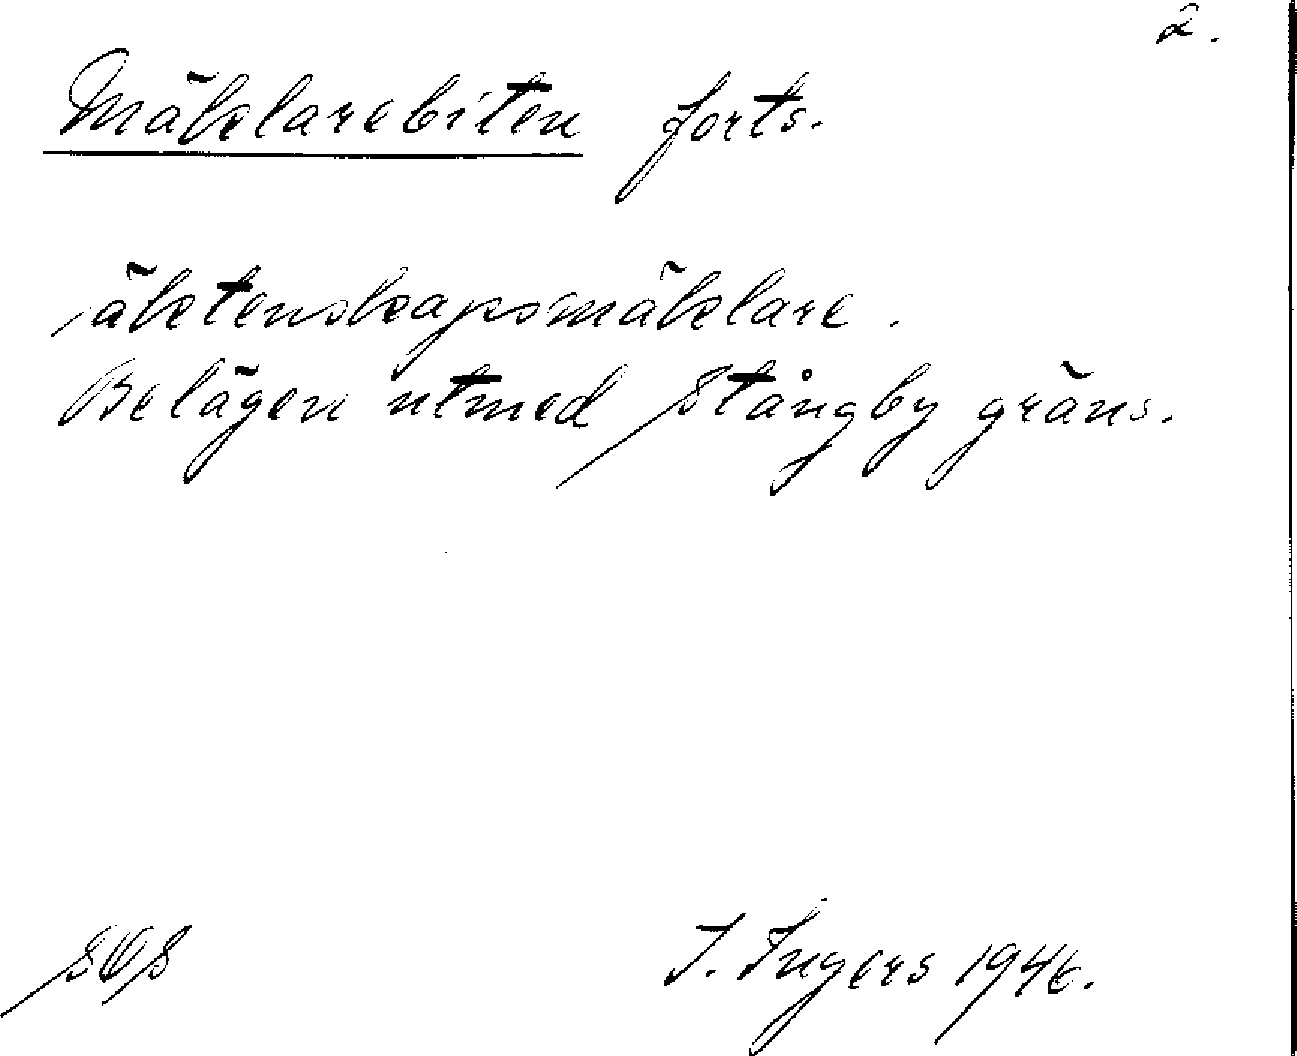 2.
Mäklarebiten forts.
äktenskapsmäklare.
Belägen utmed Stångby gräns.
SOS I. Ingers 1946.